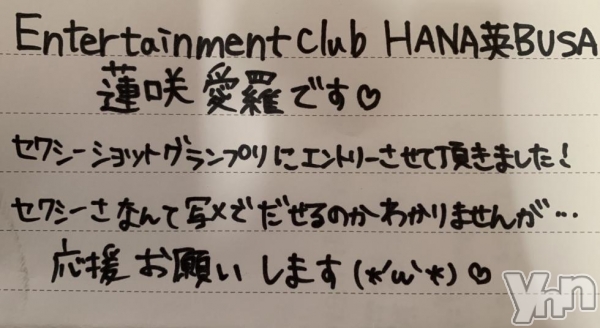 Entertainment Club HANA英BUSA
蓮咲 愛羅です♡
セクシーショットグランプリにエントリーさせて頂きました！
セクシーさなんて写メでだせるのかわかりませんが…
応援お願いします(*'ω'*)♡
Ynn